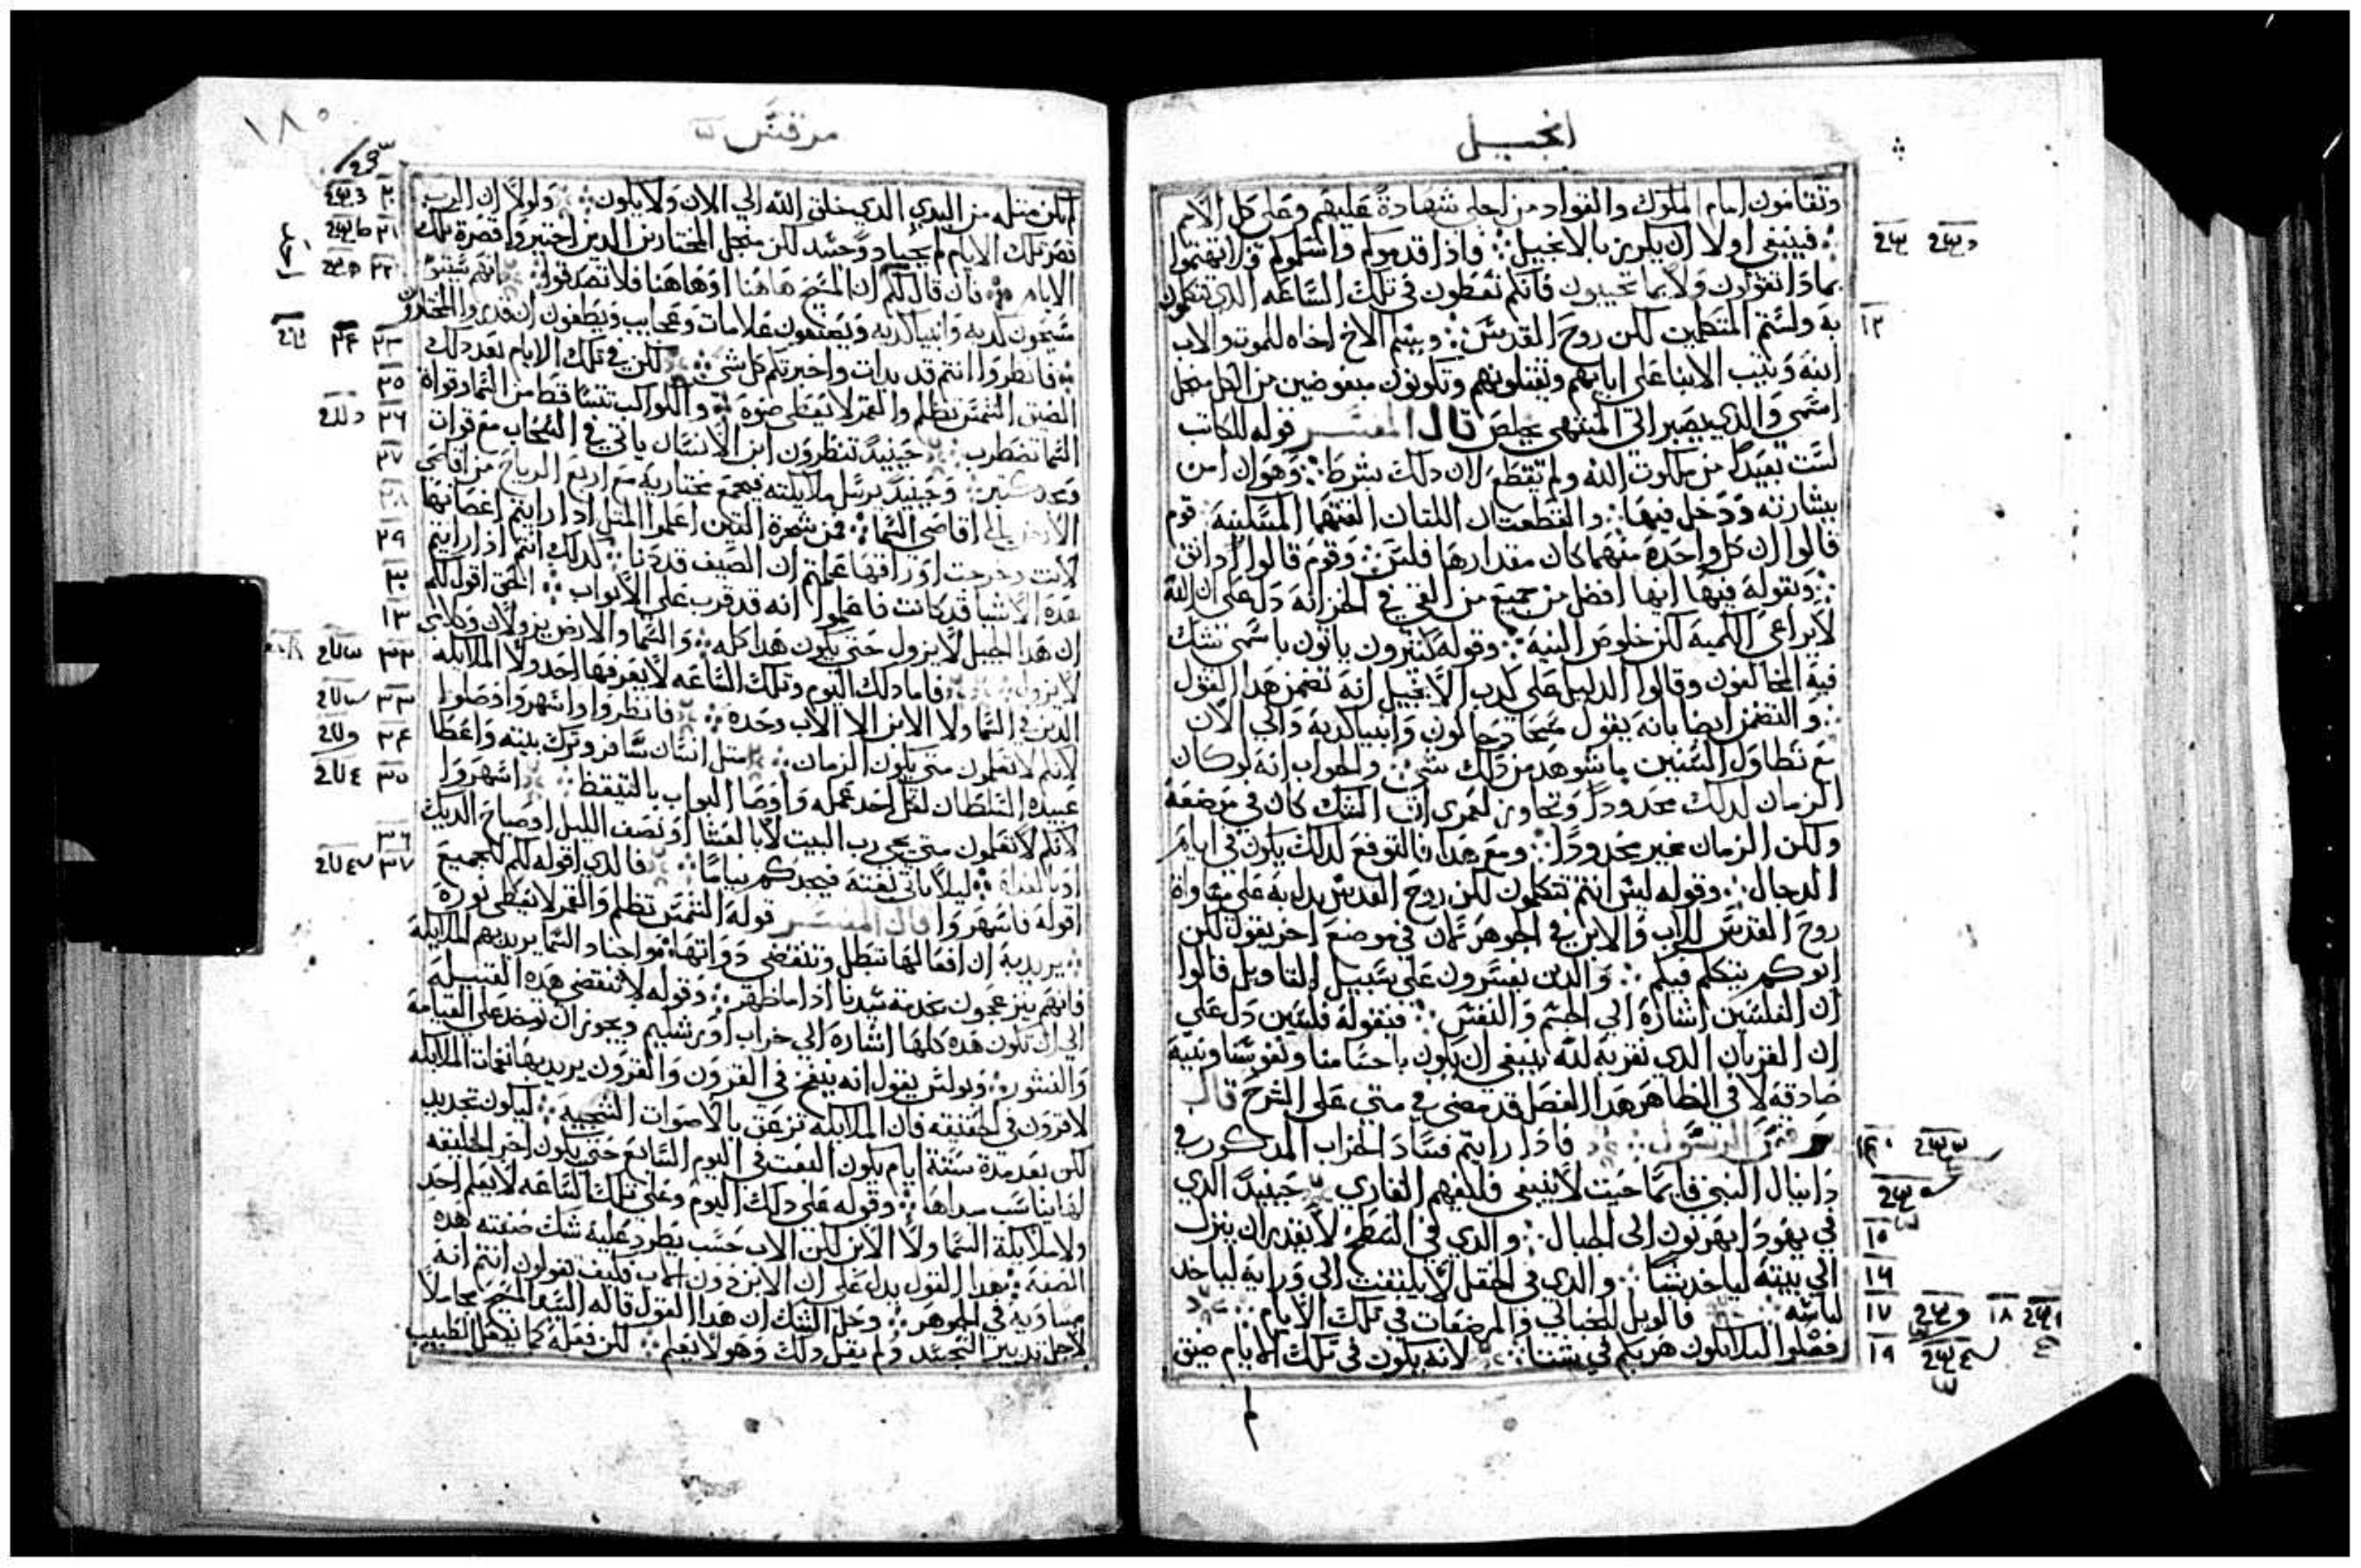 انجيل
وتقامون امام الملوك والقواد من اجلي شهادة عليهم وعلى كل الامم
فينبغي اولا ان يكرز بالانجيل فاذا قدموكم واسلموكم فلا تهتموا
بماذا تقولون ولا بما تجيبون فانكم تعطون في تلك الساعه الذي تتكلمون
به ولستم المتكلمين لكن روح القدس ويسلم الاخ اخاه للموت والاب
ابنه ويثب الابنا على ابايهم ويقتلونهم وتكونون مبغوضين من الكل من اجل
اسمي والذي يصبر الى المنتهى يخلص قال المفسر قوله للكاتب
لست بعيدا من ملكوت الله ولم تقطع لان ذلك بشرط وهو ان امن
ببشارته ودخل فيها والقطعتان اللتان القتهما المسكينه قوم
قالوا ان كل واحدة منهما كان مقدارها فلس وقوم قالوا
وبقوله فيها انها افضل من جميع من القي في الخزانه دل على ان الله
لا يراعي الكميه لكن خلوص النيه وقوله كثيرون ياتون باسمي تشك
فيه المخالفون وقالوا الدليل على كذب الانجيل انه تضمن هذا القول
والتضمن ايضا بانه يقول مسحا دجالون وانبيا كذبة والى الان
مع تطاول السنين ما شوهد من ذلك شي والجواب انه لو كان
الزمان لذلك محدودا وتجاوز لعمري ان الشك كان في موضعه
ولكن الزمان غير محدودا ومع هذا فالتوقع لذلك يكون في ايام
الدجال وقوله ليس انتم تتكلمون لكن روح القدس يدل به على مساواة
روح القدس للاب والابن في الجوهر لان في موضع اخر يقول لكن
ابوكم يتكلم فيكم والذين يفسرون على سبيل التاويل قالوا
ان الفلسين اشارة الى الجسم والنفس فبقوله فلسين دل على
ان القربان الذي نقربه لله ينبغي ان يكون باجسامنا ونفوسنا وبنية
صادقه لا في الظاهر هذا الفصل قد مضى في متى على الشرح قال
مرقس الرسول فاذا رايتم فساد الخراب المذكور في
دانيال النبي قايما حيث لا ينبغي فليفهم القاري حينيذ الذي
في يهودا يهربون الى الجبال والذي في السطح لا يقدر ان ينزل
الى بيته لياخذ شيا والذي في الحقل لا يلتفت الى ورايه لياخذ
لباسه فالويل للحبالي والمرضعات في تلك الايام
فصلوا ليلا يكون هربكم في شتا لانه يكون في تلك الايام ضيق
مرقس
١٨٠
لم يكن مثله من البدي الذي خلق الله الى الان ولا يكون ولولا ان الرب
قصر تلك الايام لم يحيا ذو جسد لكن من اجل المختارين الذين اختير واقصرة تلك
الايام فان قال لكم ان المسيح هاهنا او هاهنا فلا تصدقوا
مسحون كذبه وانبيا كذبه ويصنعون علامات وعجايب ويطغون ان قدروا المختارون
فانظروا انتم قد بدات واخبرتكم كل شي لكن في تلك الايام بعد ذلك
الضيق الشمس تظلم والقمر لا يعطي ضوه والكواكب تتساقط من السما وقواة
السما تضطرب حينيذ تنظرون ابن الانسان ياتي في السحاب مع قوات
ومجد كثير وحينيذ يرسل ملايكته فيجمع مختاريه مع اربع الرياح من اقاصي
الارض الى اقاصي السما فمن شجرة التين اعلموا المثل اذا رايتم اغصانها
لانت وخرجت اوراقها علمتم ان الصيف قد دنا كذلك انتم اذا رايتم
هذه الاشيا قد كانت فاعلموا انه قد قرب على الابواب الحق اقول لكم
ان هذا الجيل لا يزول حتى يكون هذا كله والسما والارض يزولان وكلامي
لا يزول فاما ذلك اليوم وتلك الساعه لا يعرفها احد ولا الملايكه
الذين في السما ولا الابن الا الاب وحده فانظروا واسهروا وصلوا
لانكم لا تعلمون متى يكون الزمان مثل انسان سافر وترك بيته واعطا
عبيده السلطان لكل احد عمله واوصا البواب بالتيقظ اسهروا
لانكم لا تعلمون متى يجي رب البيت لا بالعشا او نصف الليل او صياح الديك
او بالغداة ليلا ياتي بغته فيجدكم نياما فالذي اقوله لكم للجميع
اقوله فاسهروا قال المفسر قوله الشمس تظلم والقمر لا يعطي نوره
يريد به ان افعالها تبطل وتنقضي ذواتها واجناد السما يريد بهم الملايكة
فانهم ينزعجون بخدمة سيدنا اذا ما ظهر وقوله لا تنقضي هذه القبيله
الى ان تكون هذه كلها اشارة الى خراب اورشليم ويجوز ان توخذ على القيامة
والنشور وبولس يقول انه ينفخ في القرون والقرون يريد بها نغمات الملايكه
لا قرون في الحقيقه فان الملايكه تزعق بالاصوات الشجيه ليكون تجديد
لكن بعد مدة ستة ايام يكون البعث في اليوم السابع حتى يكون اخر الخليقه
لها يناسب مبداها وقوله على ذلك اليوم وعلى تلك الساعه لا يعلم احد
ولا ملايكة السما ولا الابن لكن الاب حسب يطرد عليه شك صفته هذه
الصفة هذا القول يدل على ان الابن دون الاب فكيف تقولون انتم انه
مساويه في الجوهر وحل الشك ان هذا القول قاله السيد المسيح
لاجل تدبير التجسد ولم يقل ذلك وهو لا يعلم لكن فعله كما يفعل الطبيب